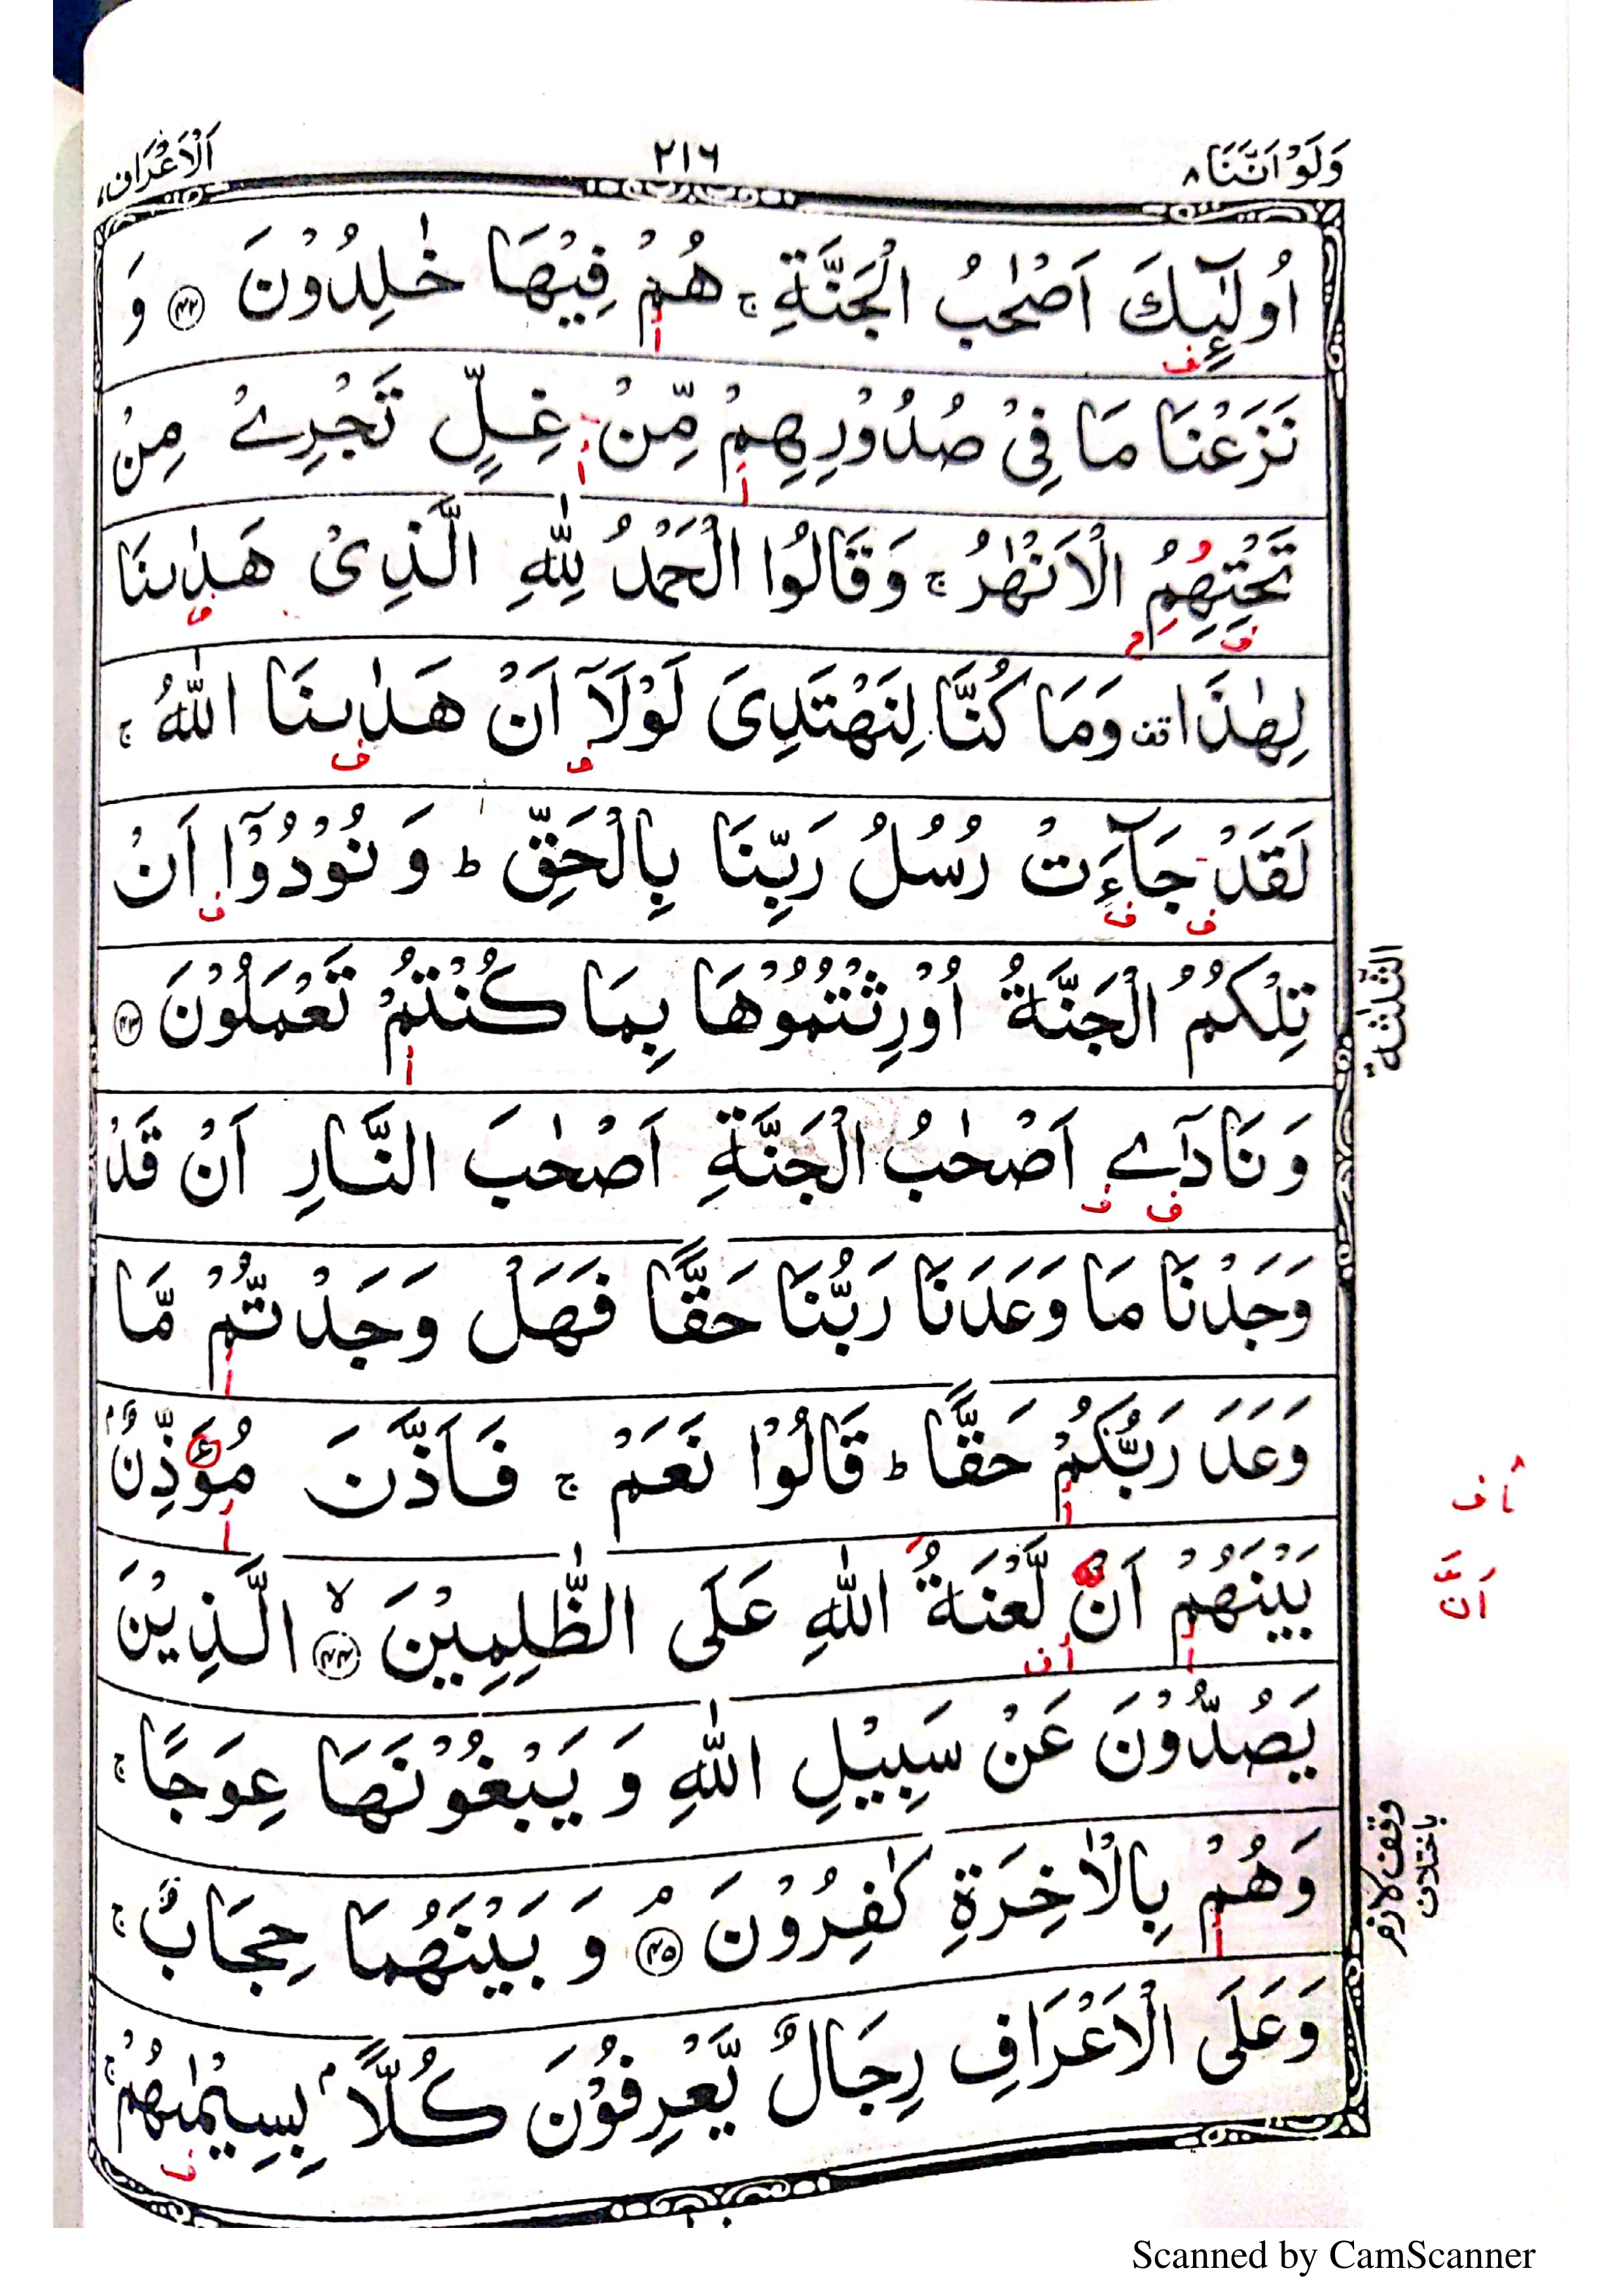 وَلَوْ اَنَّنَا ٨
٢١٦
اَلْاَعْرَاف ٧
اُولٰٓئِكَ اَصْحٰبُ الْجَنَّةِ ۚ هُمْ فِيْهَا خٰلِدُوْنَ ﴿۴۲﴾ وَ
نَزَعْنَا مَا فِيْ صُدُوْرِهِمْ مِّنْ غِلٍّ تَجْرِيْ مِنْ
تَحْتِهِمُ الْاَنْهٰرُ ۚ وَقَالُوا الْحَمْدُ لِلّٰهِ الَّذِيْ هَدٰىنَا
لِهٰذَا قف وَمَا كُنَّا لِنَهْتَدِيَ لَوْلَآ اَنْ هَدٰىنَا اللّٰهُ ۚ
لَقَدْ جَآءَتْ رُسُلُ رَبِّنَا بِالْحَقِّ ؕ وَ نُوْدُوْٓا اَنْ
تِلْكُمُ الْجَنَّةُ اُوْرِثْتُمُوْهَا بِمَا كُنْتُمْ تَعْمَلُوْنَ ﴿۴۳﴾
الثلٰثة
وَنَادٰٓى اَصْحٰبُ الْجَنَّةِ اَصْحٰبَ النَّارِ اَنْ قَدْ
وَجَدْنَا مَا وَعَدَنَا رَبُّنَا حَقًّا فَهَلْ وَجَدْتُّمْ مَّا
وَعَدَ رَبُّكُمْ حَقًّا ؕ قَالُوْا نَعَمْ ۚ فَاَذَّنَ مُؤَذِّنٌۢ
أ ف
بَيْنَهُمْ اَنْ لَّعْنَةُ اللّٰهِ عَلَى الظّٰلِمِيْنَ ۙ﴿۴۴﴾ الَّذِيْنَ
اَنَّ
يَصُدُّوْنَ عَنْ سَبِيْلِ اللّٰهِ وَ يَبْغُوْنَهَا عِوَجًا ۚ
وَهُمْ بِالْاٰخِرَةِ كٰفِرُوْنَ ۘ﴿۴۵﴾ وَ بَيْنَهُمَا حِجَابٌ ۚ
وقف لازم
باختلاف
وَعَلَى الْاَعْرَافِ رِجَالٌ يَّعْرِفُوْنَ كُلًّاۢ بِسِيْمٰىهُمْ ۚ
Scanned by CamScanner